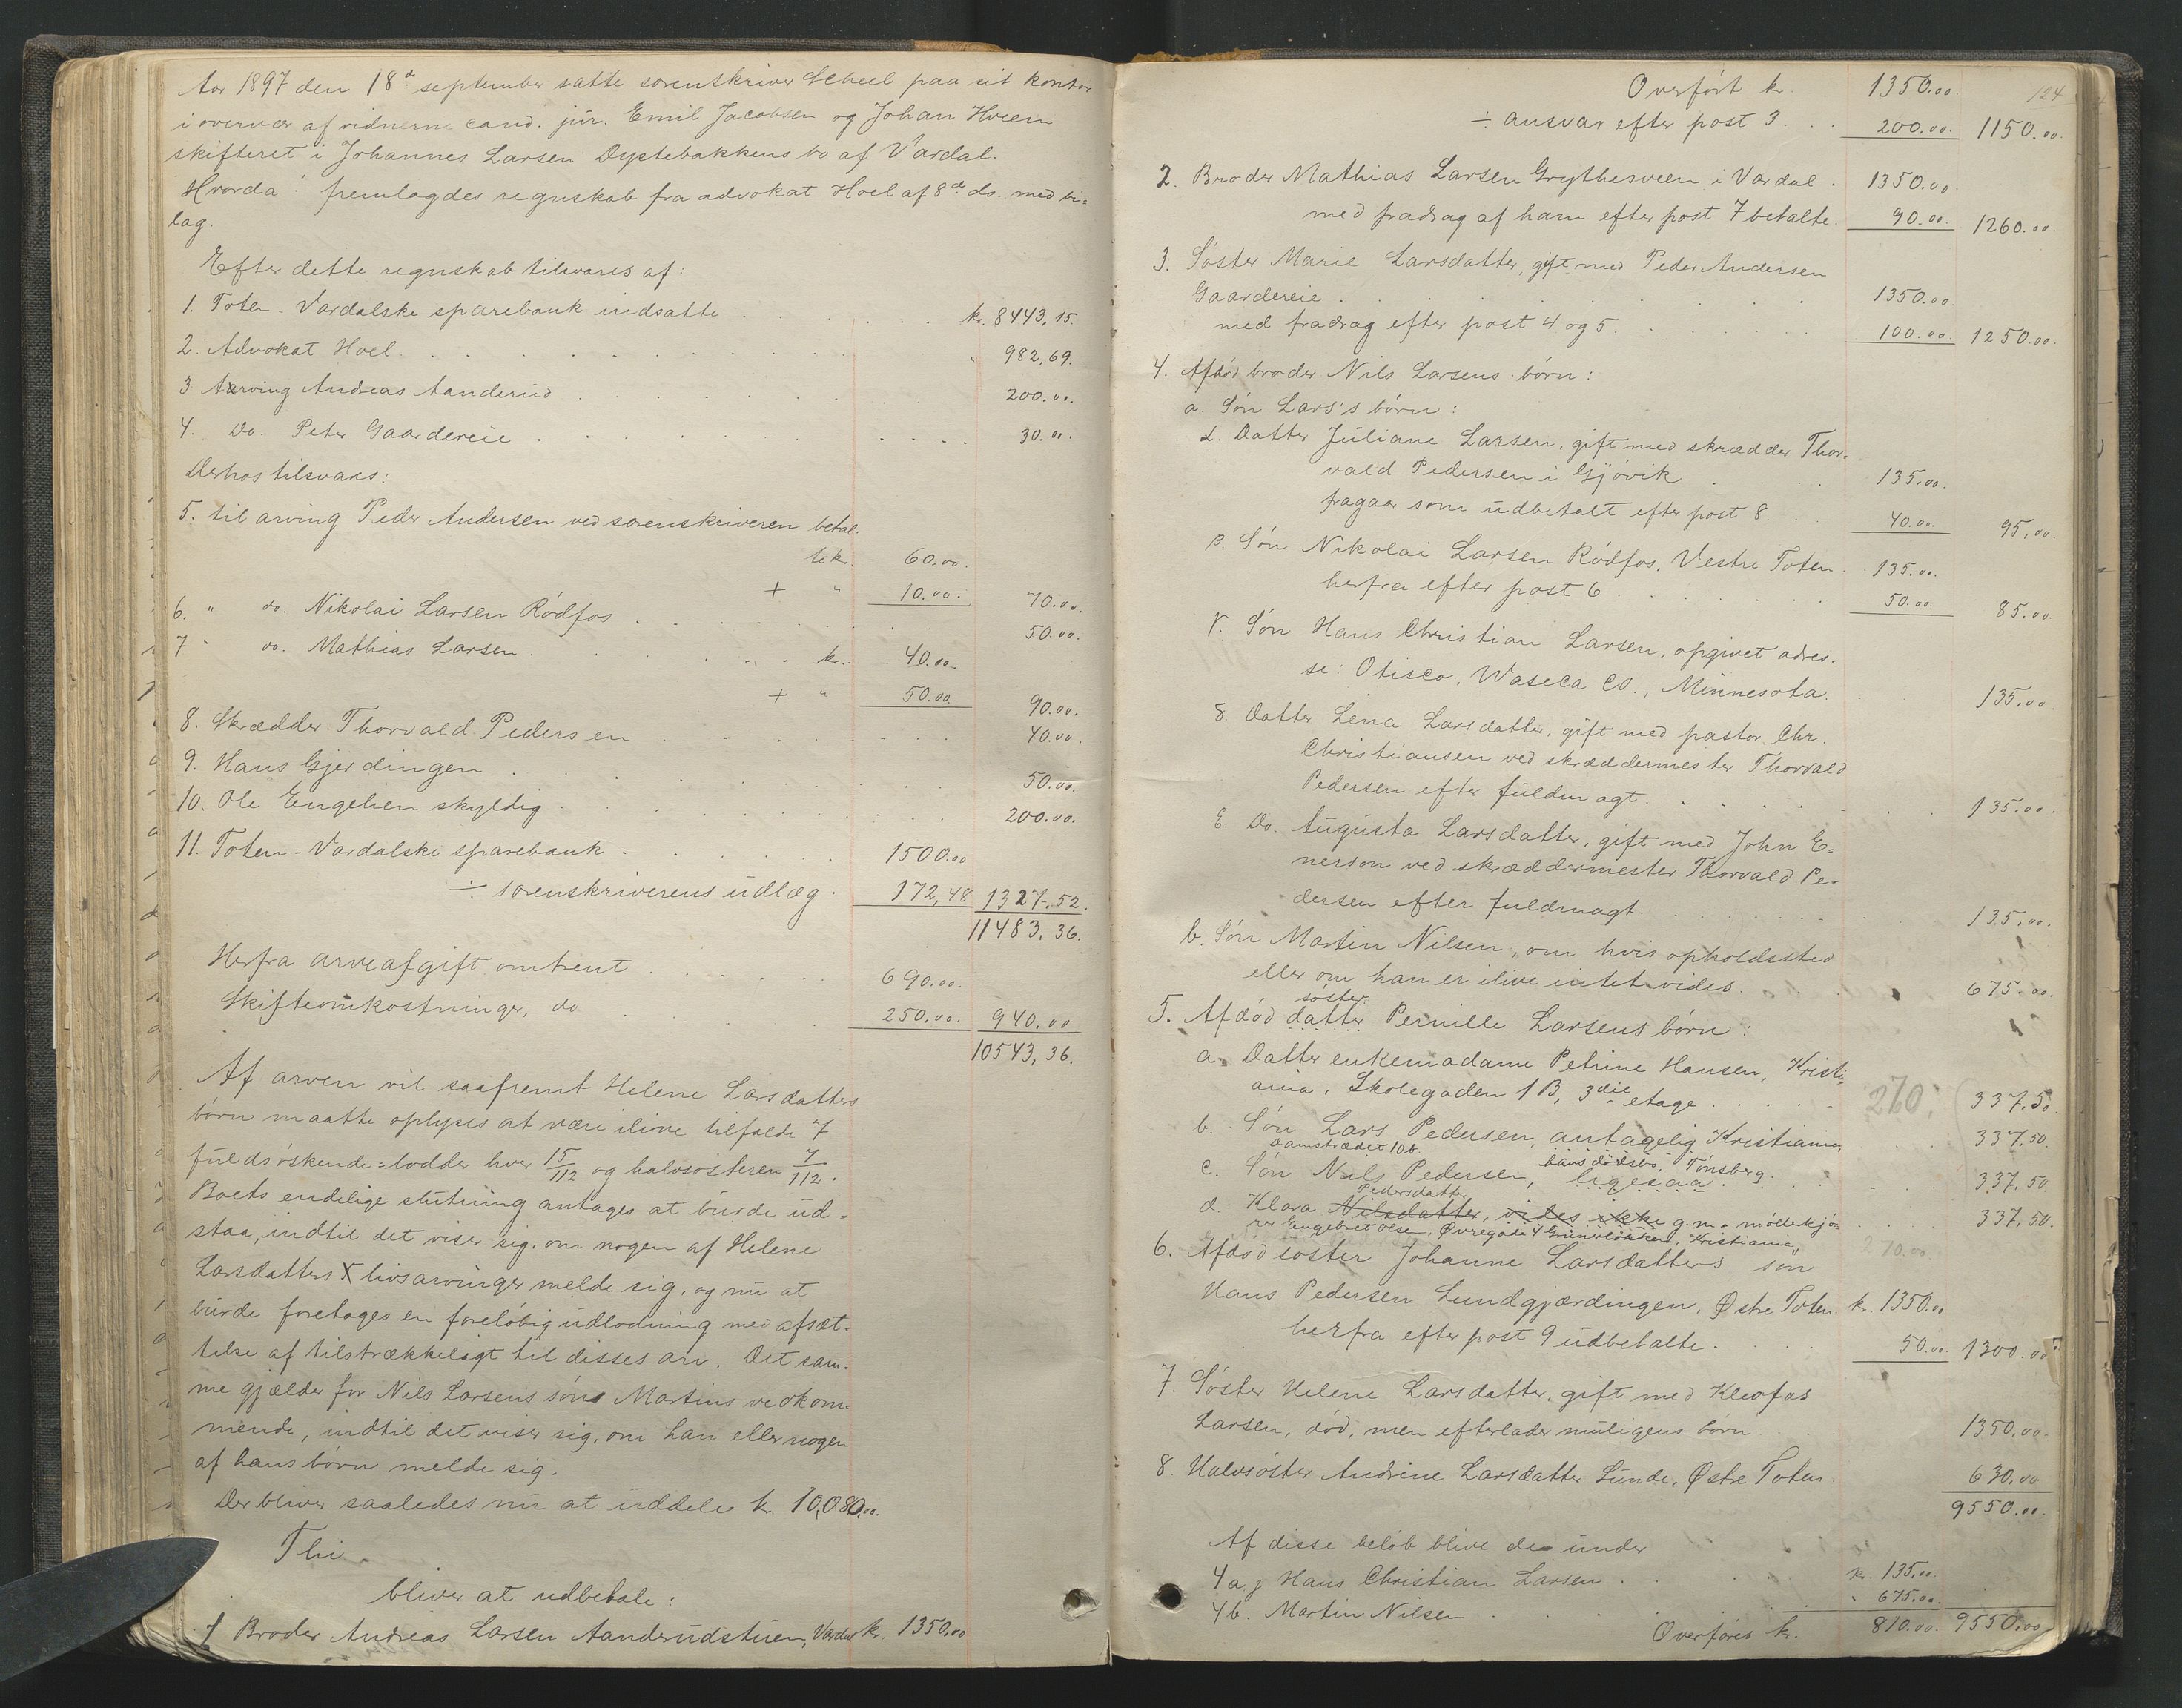 Aar 1897 den 18de september satte sorenskriver Scheel paa sit kontor
i overvær af vidnerne cand. jur. Emil Jacobsen og Johan Hveem
skifteret i Johannes Larsen Dystebakkens bo af Vardal.
Hvorda: fremlagdes regnskab fra advokat Hoel af 8de ds. med bi=
lag.
Efter dette regnskab tilsvares af:
1. Toten-Vardalske sparebank indsatte . . . kr. 8443,15.
2. Advokat Hoel . . . " 982,69.
3 Arving Andreas Aanderud . . . 200.00.
4. Do. Peter Gaardereie . . . 30.00.
Derhos tilsvares:
5. til arving Peder Andersen ved sorenskriveren betal-
te kr. 60.00.
+ " 10.00. 70.00.
6. " do. Nikolai Larsen Rödfos . . . 50.00.
7 " do. Mathias Larsen . . . kr. 40.00.
+ " 50.00 90.00.
8. Skrædder Thorvald Pedersen . . . 40.00.
9. Hans Gjerdingen . . . 50.00.
10. Ole Engelien skyldig . . . 200.00.
11. Toten-Vardalske sparebank . . . 1500.00
÷ sorenskriverens udlæg . 172,48 1327.52.
11483,36.
Herfra arveafgift omtrent . . . 690.00.
Skifteomkostninger, do . . . 250.00. 940.00
10543,36.
Af arven vil saafremt Helene Larsdatters
börn maatte oplyses at være ilive tilfalde 7
fuldsöskende=lodder hver 15/112 og halvsösteren 7/112.
Boets endelige slutning antages at burde ud=
staa, indtil det viser sig, om nogen af Helene
Larsdatters livsarvinger melde sig, og nu at
burde foretages en foreløbig udlodning med afsæt-
telse af tilstrækkeligt til disses arv. Det sam-
me gjælder for Nils Larsens söns Martins vedkom-
mende, indtil det viser sig, om han eller nogen
af hans börn melde sig.
Der bliver saaledes nu at uddele kr. 10,080.00.
Thi
bliver at udbetale:
1 Broder Andreas Larsen Aanderudstuen, Vardal kr. 1350.00
124
Overfört kr. 1350.00.
÷ ansvar efter post 3 . . . 200.00. 1150.00.
2. Broder Mathias Larsen Grythesveen i Vardal . 1350.00.
med fradrag af ham efter post 7 betalte. 90.00. 1260.00.
3. Söster Marie Larsdatter, gift med Peder Andersen
Gaardereie . . . 1350.00.
med fradrag efter post 4 og 5 . . . 100.00. 1250.00.
4. Afdöd broder Nils Larsens börn:
a. Sön Lars's börn:
α. Datter Juliane Larsen, gift med skrædder Thor-
vald Pedersen i Gjövik . . . 135.00.
fragaar som udbetalt efter post 8. . . 40.00. 95.00.
β. Sön Nikolai Larsen Rödfos, Vestre Toten . 135.00.
herfra efter post 6 . . . 50.00. 85.00.
γ. Sön Hans Christian Larsen, opgivet adres-
se: Otisco, Waseca Co., Minnesota. 135.00.
δ Datter Lena Larsdatter, gift med pastor Chr.
Christiansen ved skræddermester Thorvald
Pedersen efter fuldmagt . . . 135.00.
ε. Do. Augusta Larsdatter, gift med John E-
nerson ved skræddermester Thorvald Pe-
dersen efter fuldmagt . . . 135.00.
b. Sön Martin Nilsen, om hvis opholdssted
eller om han er ilive intet vides. . . 675.00.
söster
5. Afdöd datter Pernille Larsens börn:
a. Datter enkemadame Petrine Hansen, Kristi-
ania, Skolegaden 1B, 3die etage . . . 270: 337.50.
b. Sön Lars Pedersen, antagelig Kristiania, . . 337.50
Damstrædet 10b. hans dödsbo, Tönsberg.
c. Sön Nils Pedersen, ligesaa . . . 337.50.
Pedersdatter
d. Klara Nilsdatter, vides ikke g. m. möllekjö- . . 337,50.
rer Engebret Olsen, Övregade 4 Grünerlökken, Kristiania,
270.00
6. Afdöd söster Johanne Larsdatters sön
Hans Pedersen Lundgjærdingen, Østre Toten kr. 1350.00
herfra efter post 9 udbetalte . . . 50.00. 1300.00
7. Söster Helene Larsdatter, gift med Kleofas
Larsen, död, men efterlader muligens börn 1350.00.
8. Halvsöster Andrine Larsdatter Lunde, Østre Toten 630.00
9550.00.
Af disse beløb blive de under
4 a γ Hans Christian Larsen . . . kr. 135.00.
4 b. Martin Nilsen . . . " 675.00.
Overföres kr. 810.00. 9550.00